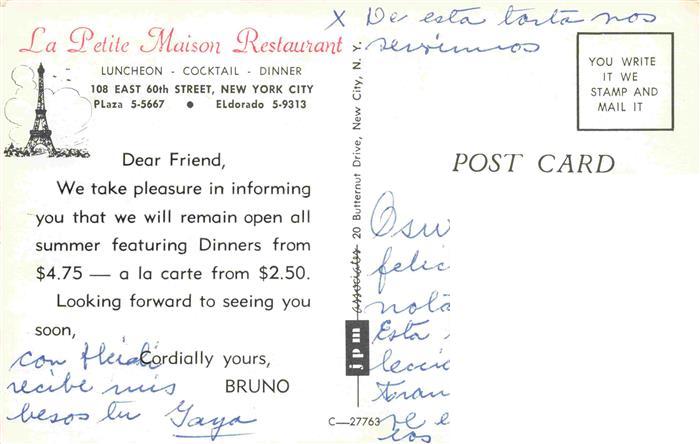 La Petite Maison Restaurant
LUNCHEON - COCKTAIL - DINNER
108 EAST 60th STREET, NEW YORK CITY
Plaza 5-5667 • ELdorado 5-9313
Dear Friend,
We take pleasure in informing
you that we will remain open all
summer featuring Dinners from
$4.75 — a la carte from $2.50.
Looking forward to seeing you
soon,
Cordially yours,
BRUNO
con Heidi
recibe mis
besos tu Yaya
jpm associates 20 Butternut Drive, New City, N. Y.
C—27763
X De esta torta nos
servimos
YOU WRITE
IT WE
STAMP AND
MAIL IT
POST CARD
Osw
felic
nota
Esta
lecci
Fran
ve e
cos